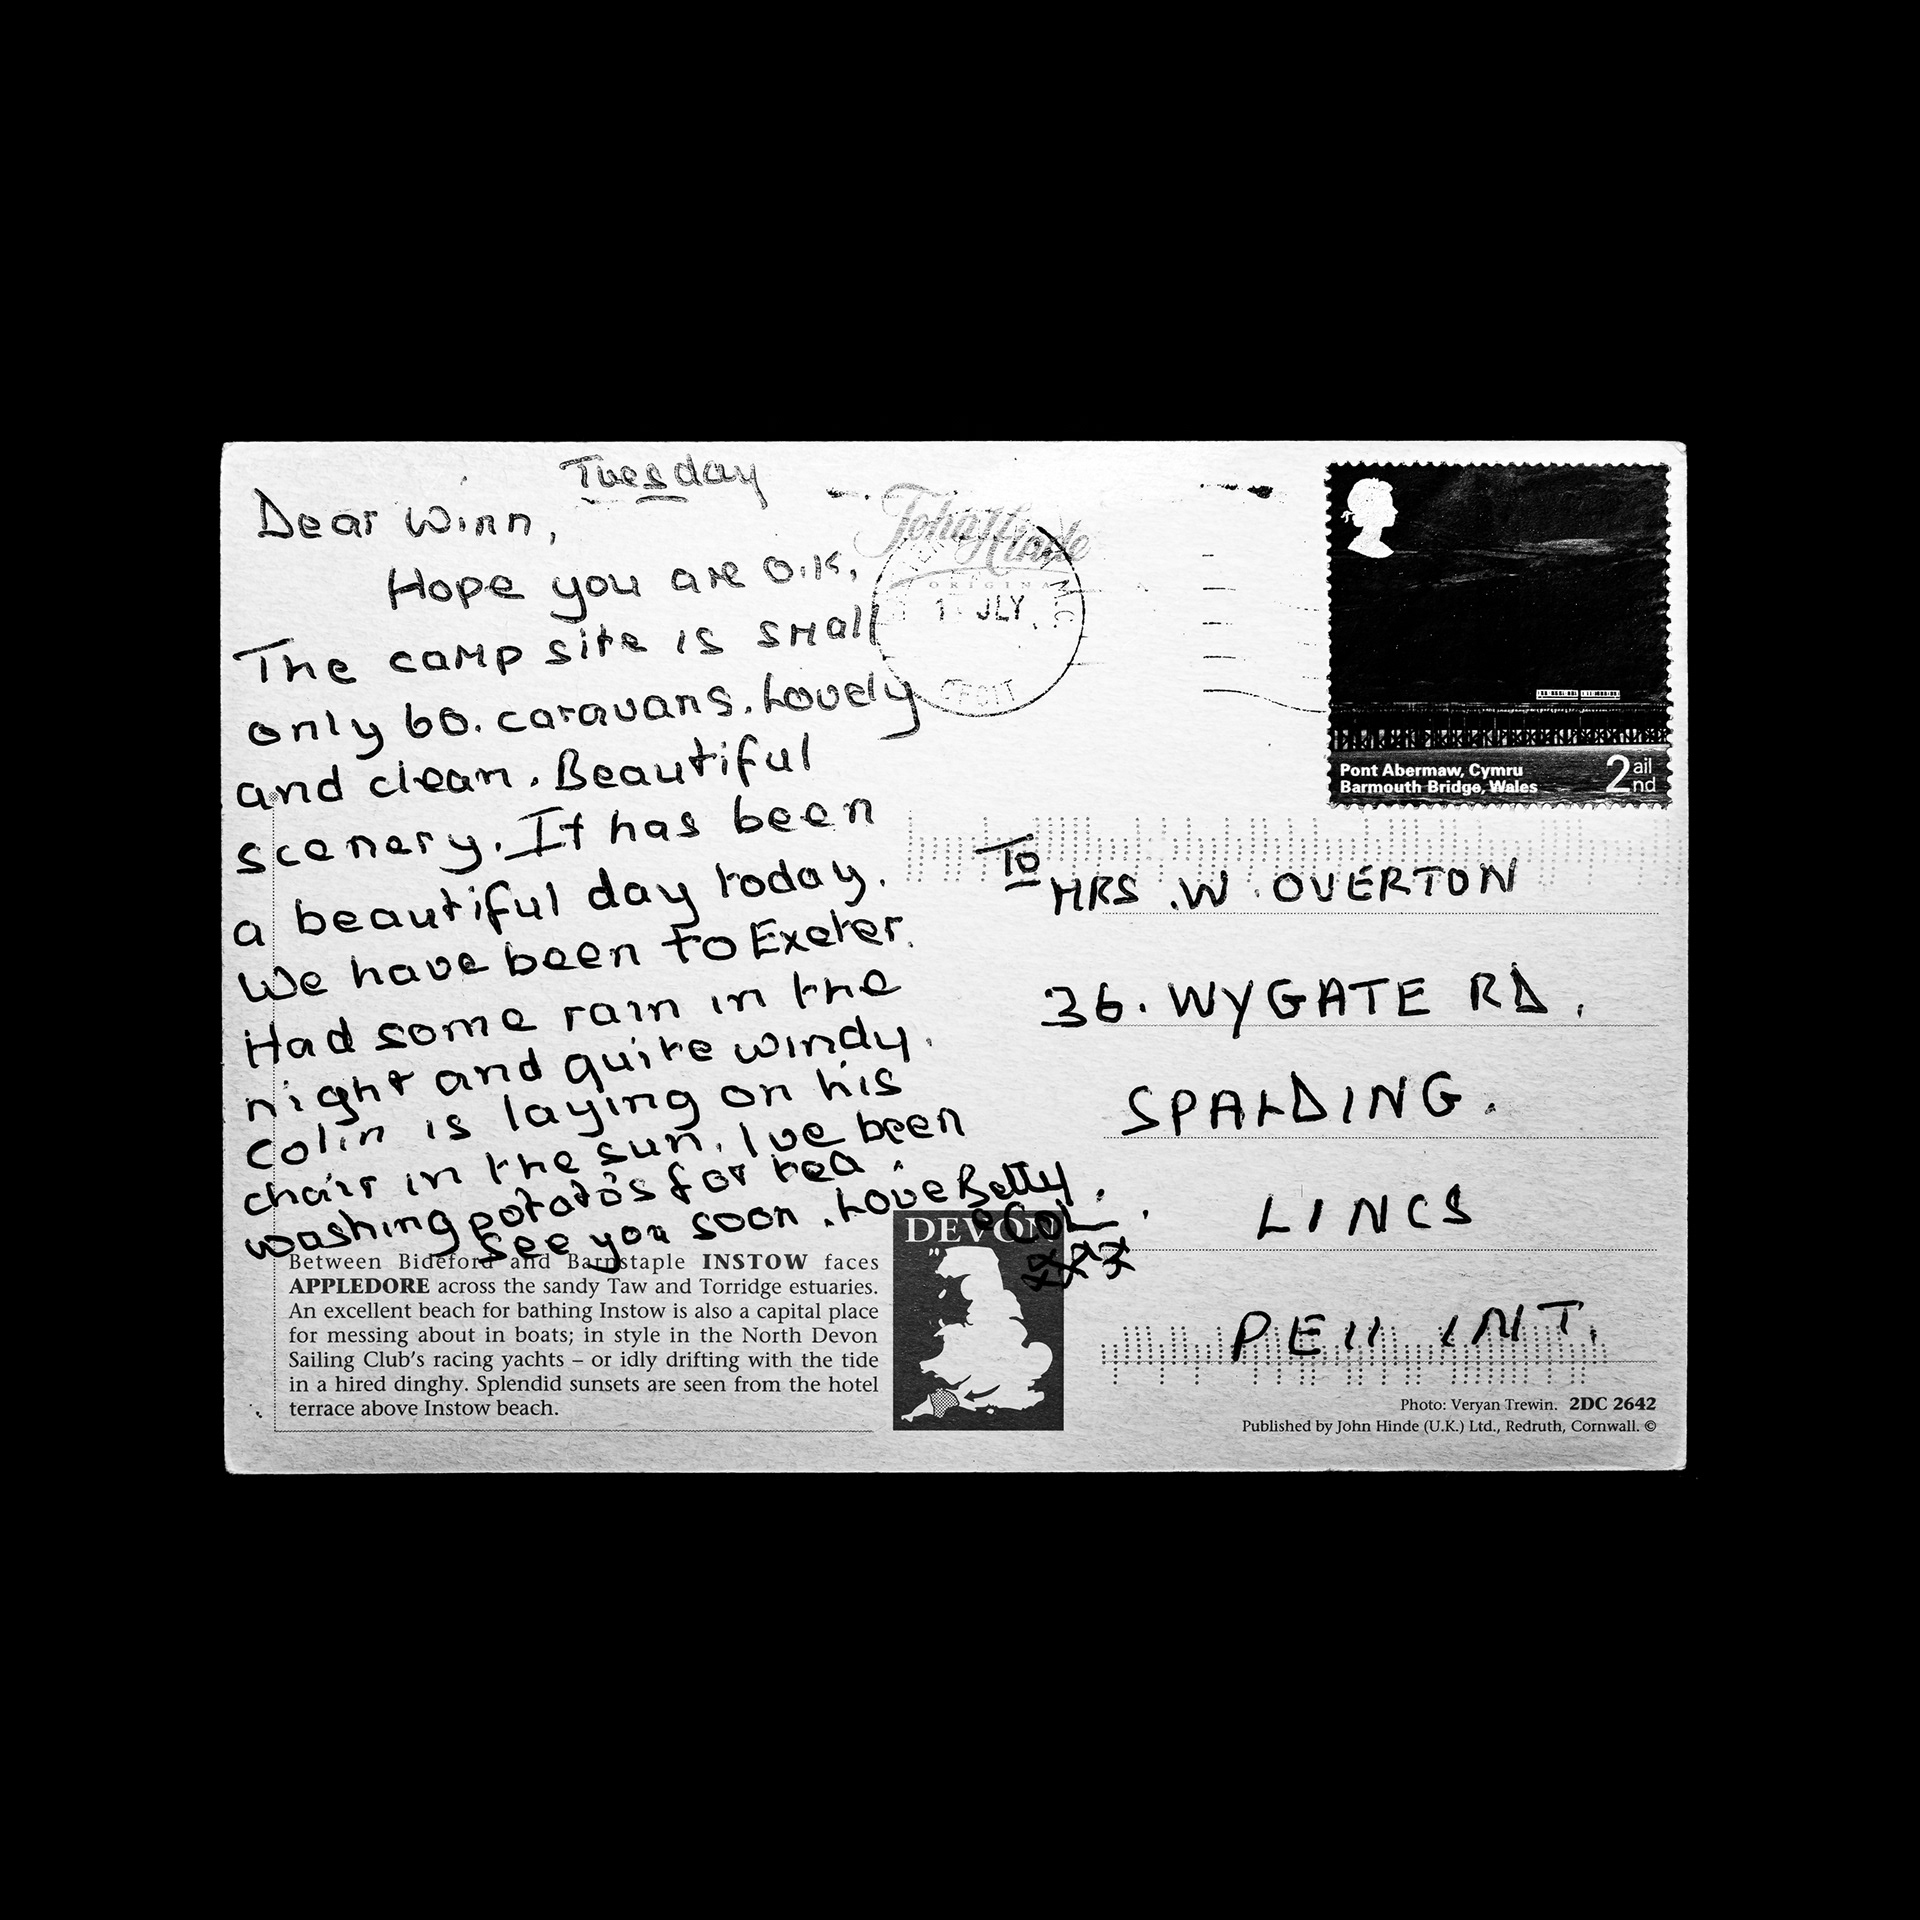 Tuesday
Dear Winn,
Hope you are O.K,
The camp site is small
only 60. caravans. Lovely
and clean. Beautiful
scenery. It has been
a beautiful day today.
We have been to Exeter.
Had some rain in the
night and quite windy.
Colin is laying on his
chair in the sun. I've been
washing potato's for tea.
See you soon. Love Betty.
& COL.
xxx
Between Bideford and Barnstaple INSTOW faces
APPLEDORE across the sandy Taw and Torridge estuaries.
An excellent beach for bathing Instow is also a capital place
for messing about in boats; in style in the North Devon
Sailing Club's racing yachts – or idly drifting with the tide
in a hired dinghy. Splendid sunsets are seen from the hotel
terrace above Instow beach.
DEVON
John Hinde
ORIGINAL
1 JLY
Pont Abermaw, Cymru
Barmouth Bridge, Wales
2 ail
nd
To
MRS .W. OVERTON
36. WYGATE RD.
SPALDING.
LINCS
PE11 1NT.
Photo: Veryan Trewin. 2DC 2642
Published by John Hinde (U.K.) Ltd., Redruth, Cornwall. ©